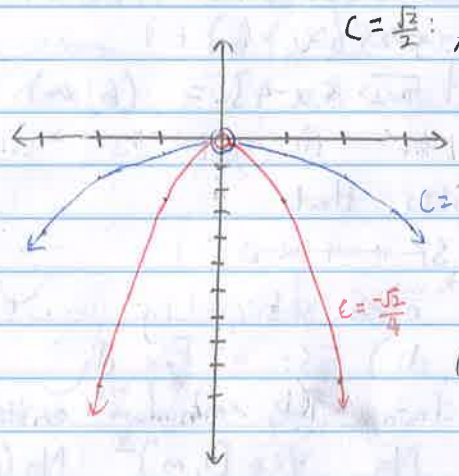 C = √2/2 :
C =
C = -√2/4